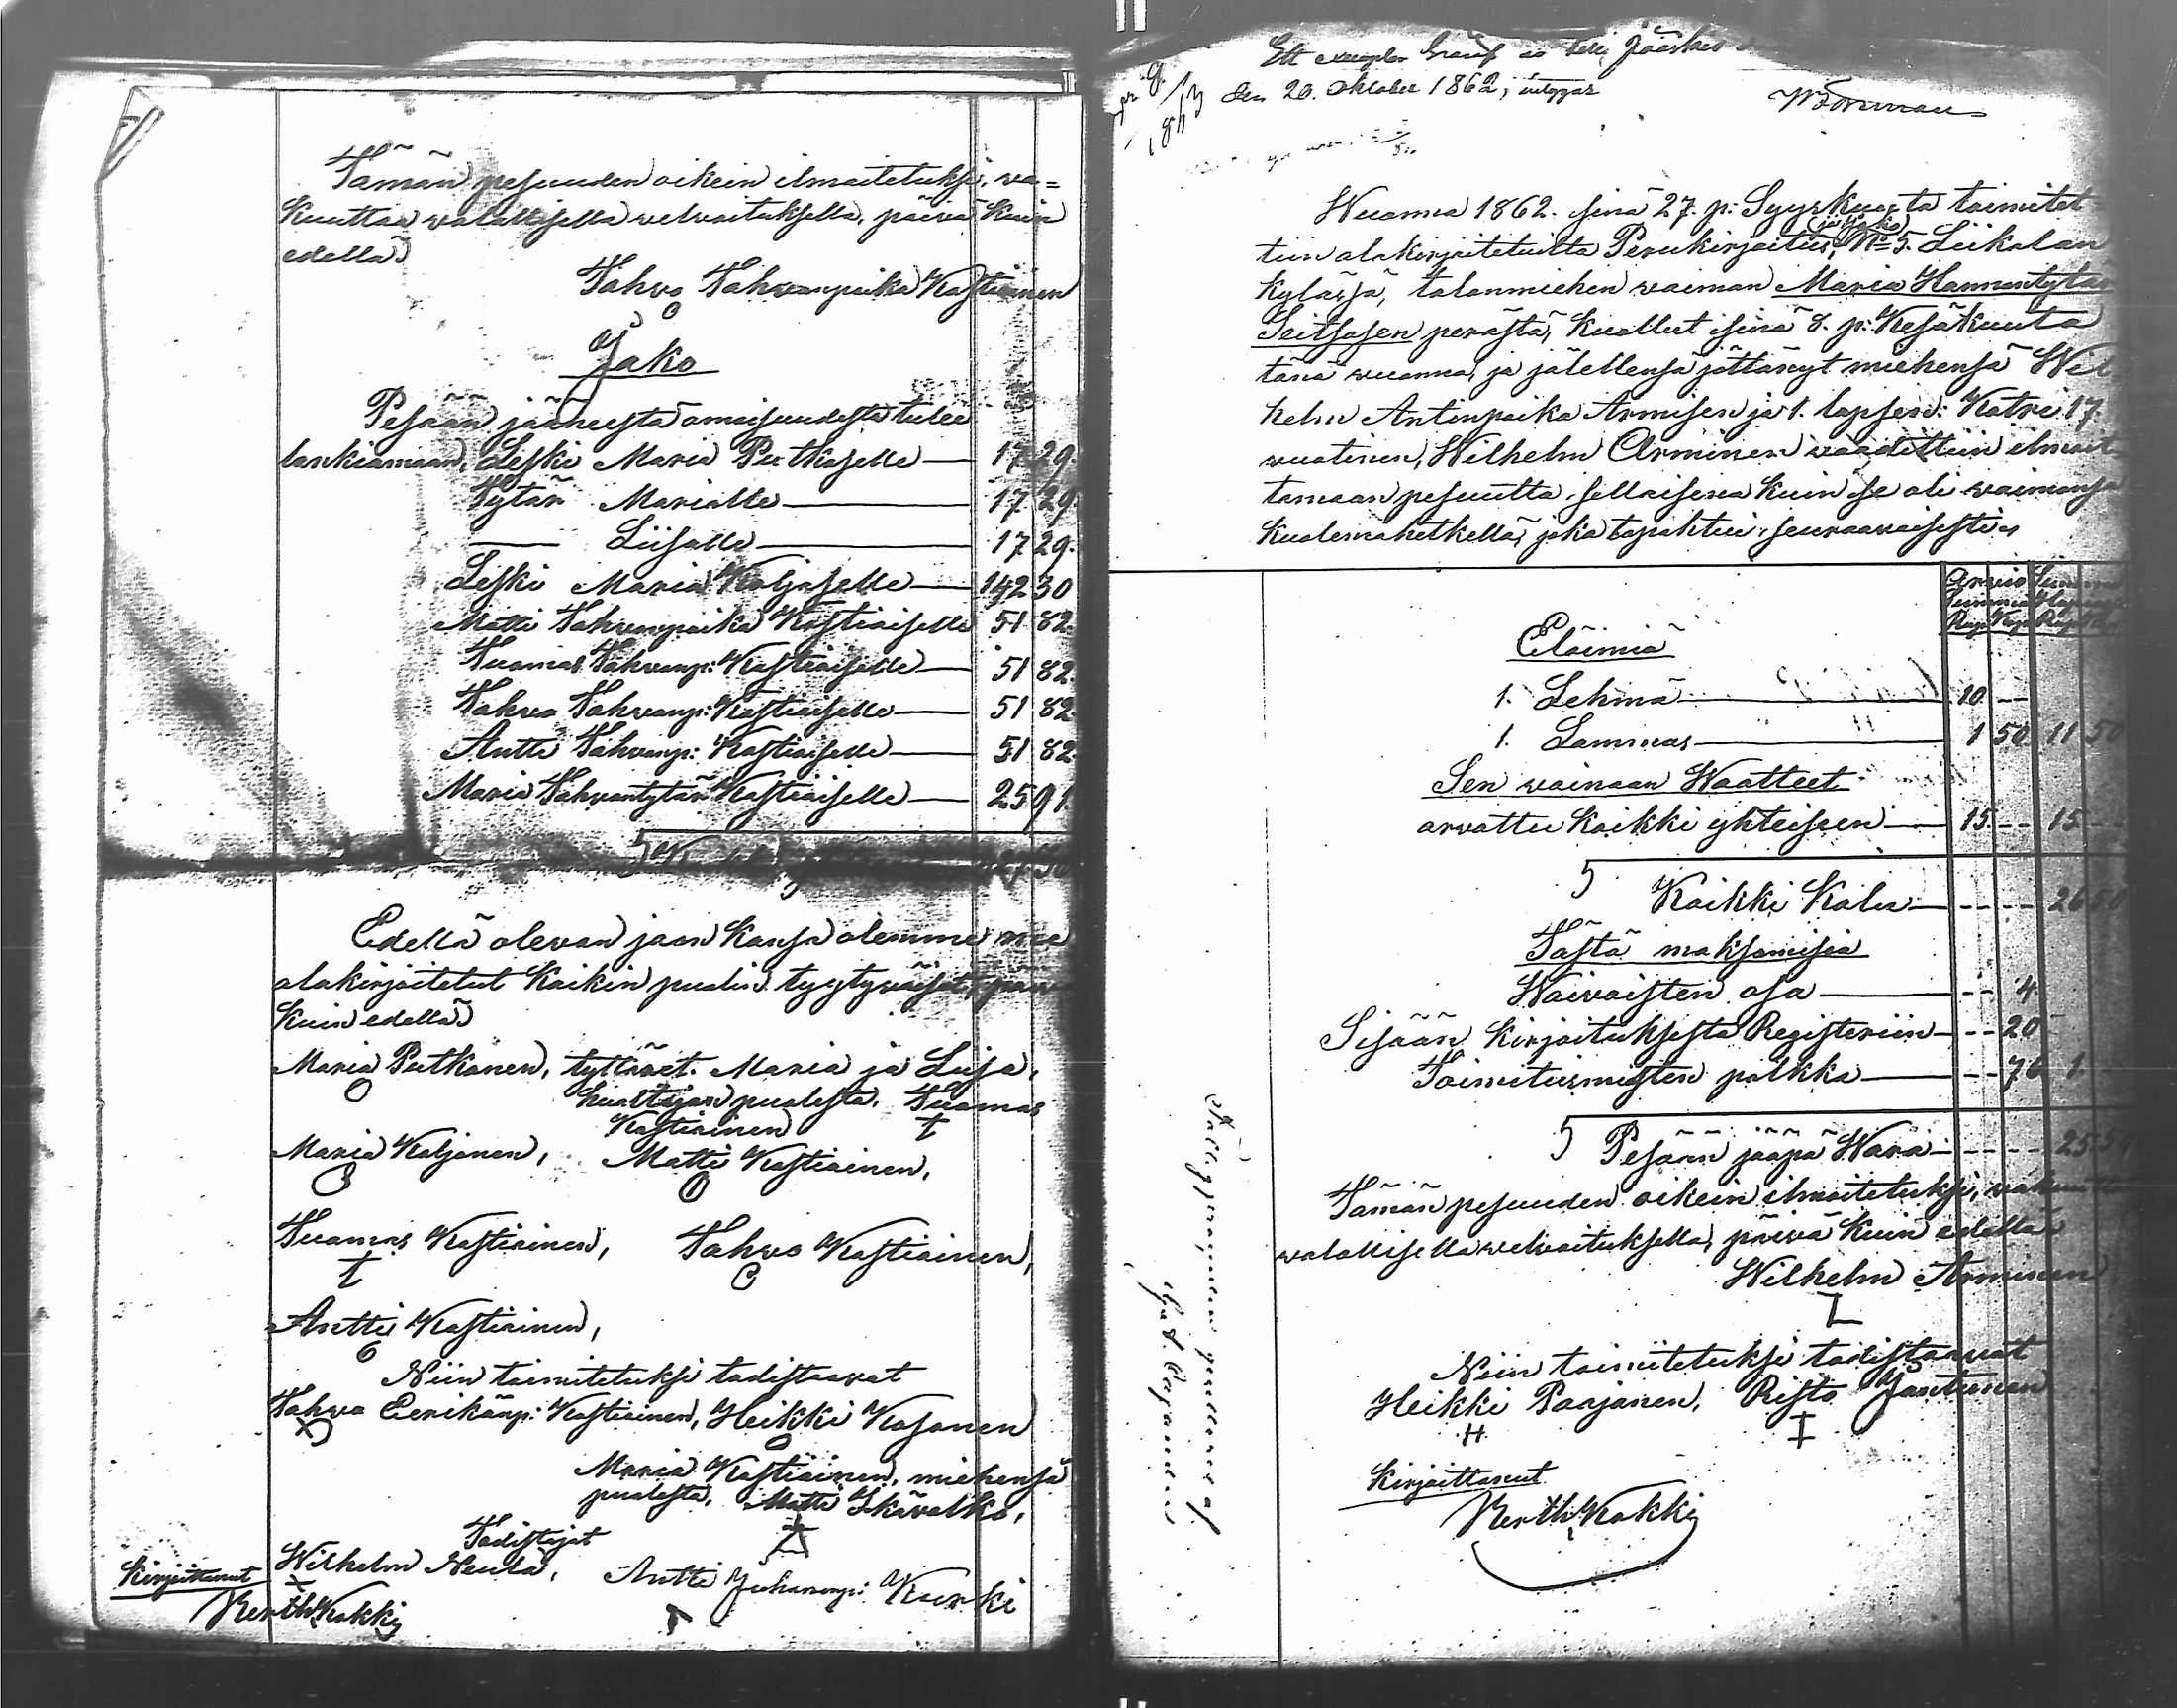 Tämän pesuuden oikein ilmoitetuksi, wa=
kuuttaa walallisella welvoituksella, päivä kuin
edellä
Tahvo Tahvonpoika Kastiainen
Jako
Pesään jääneestä omaisuudesta tulee
lankiamaan, Leski Maria Putkoselle — 17 29.
Tytär Marialle — 17 29.
— Liisalle — 17 29.
Leski Maria Koljoselle — 142 30
Matti Tahvonpoika Kastiaiselle 51 82.
Tuomas Tahvonp: Kastiaiselle — 51 82.
Tahvo Tahvonp: Kastiaiselle — 51 82
Antti Tahvonp: Kastiaiselle — 51 82
Maria Tahvontytär Kastiaiselle — 25 91.
Edellä olevan jaon kansa olemme me
alakirjoitetut kaikin puolin tyytyväiset, päivä
kuin edellä
Maria Putkonen, tyttäret. Maria ja Liisa,
huoltajan puolesta. Tuomas
Kastiainen
Maria Koljonen, Matti Kastiainen,
Tuomas Kastiainen, Tahvo Kastiainen,
Antti Kastiainen,
Niin toimitetuksi todistaavat
Tahvo Eerikänp: Kastiainen, Heikki Kasonen
Maria Kastiainen, miehensä
puolesta, Matti Ikävalko,
Todistajat
Wilhelm Neula, Antti Juhananp: Kurki
Kirjoittanut
Berth Kokki
Ett exemplar häraf Jääskis
den 20. Oktober 1862, intygas
Wuonna 1862. sinä 27. p: Syyskuuta toimitet
(ja Jako)
tiin alakirjoiteluilta Perukirjoitus, No 5. Liikolan
kylässä, talonmiehen waimon Maria Hannuntytär
Seitsosen perästä, kuollut sinä 8. p: Kesäkuuta
tänä wuonna, ja jälellensä jättänyt miehensä Wil
helm Antinpoika Armisen ja 1. lapsen: Katri 17.
wuotinen, Wilhelm Arminen waadittiin ilmoit
tamaan pesuutta, sellaisena kuin se oli waimonsa
kuolemahetkellä, joka tapahtui seuraavaisesti
Arwio
Summa
Rup. Kop.
Eläimiä
1. Lehmä — 10 —
1. Lammas — 1 50 11 50
Sen wainaan Waatteet
arvattu kaikki yhteiseen — 15 — 15 —
Kaikki Kalu — 26 50
Tästä maksamisia
Waivaisten osa — 4
Sisään kirjoituksesta Registeriin — 20
Toimitusmiesten palkka — 76 1
Pesään jääpä Wara — 25 5
Tämän pesuuden oikein ilmoitetuksi, wakuuttaa
walallisella welvoituksella, päivä kuin edellä
Wilhelm Arminen
Niin toimitetuksi todistaavat
Heikki Paajanen, Risto Jantunen
H.
Kirjoittanut
Berth Kokki